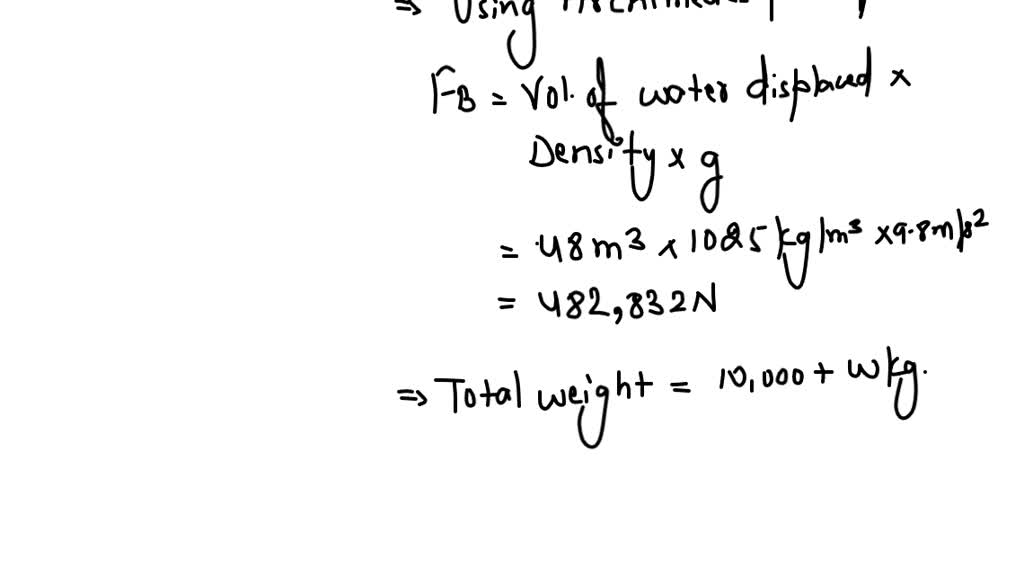 ⇒ Using
F_B = Vol. of water displaced ×
Density × g
= 48 m³ × 1025 kg/m³ × 9.8 m/s²
= 482,832 N
⇒ Total weight = 10,000 + w kg.